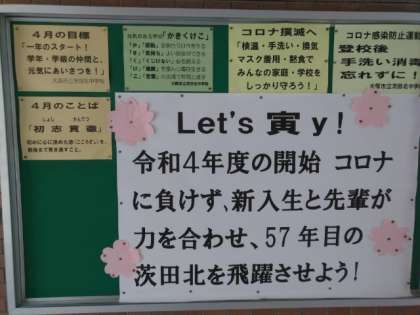 4月の目標
「一年のスタート!
学年・学級の仲間と、
元気にあいさつを!」
「かきくけこ」
コロナ撲滅へ
「検温・手洗い・換気
マスク着用・黙食で
みんなの家庭・学校を
しっかり守ろう!」
コロナ感染防止運動
登校後
手洗い消毒
忘れずに!
4月のことば
しょし かんてつ
「初志貫徹」
Let's 寅 y!
令和4年度の開始 コロナ
に負けず、新入生と先輩が
力を合わせ、57年目の
茨田北を飛躍させよう!